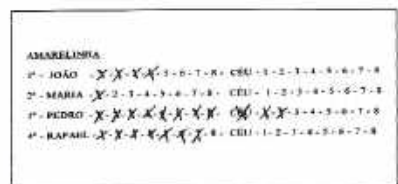 AMARELINHA
1º - JOÃO - X - X - X - X - 5 - 6 - 7 - 8 - CÉU - 1 - 2 - 3 - 4 - 5 - 6 - 7 - 8
2º - MARIA - X - 2 - 3 - 4 - 5 - 6 - 7 - 8 - CÉU - 1 - 2 - 3 - 4 - 5 - 6 - 7 - 8
3º - PEDRO - X - X - X - X - X - X - X - X - CÉU - X - X - 3 - 4 - 5 - 6 - 7 - 8
4º - RAFAEL - X - X - X - X - X - X - X - 8 - CÉU - 1 - 2 - 3 - 4 - 5 - 6 - 7 - 8